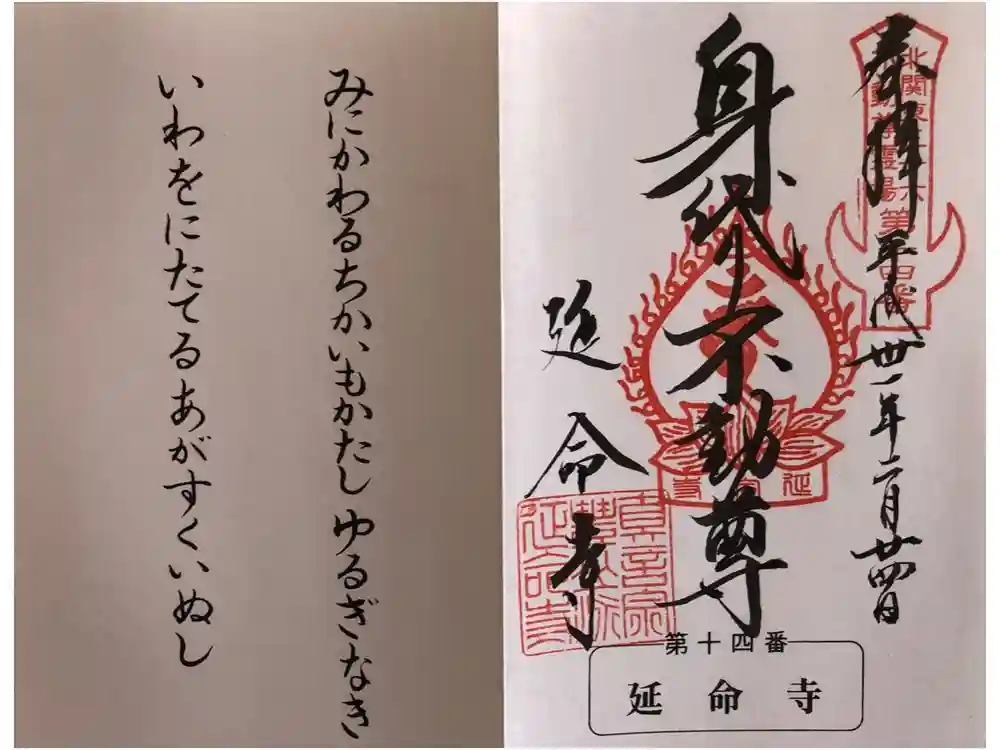 奉拝
平成卅一年二月廿四日
北関東三十六
不動尊霊場
第十四番
身代不動尊
延命寺
延命寺
真言宗
延命寺
第十四番
延命寺
みにかわるちかいもかたしゆるぎなき
いわをにたてるあがすくいぬし